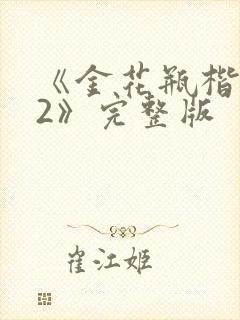 《金花瓶楷
2》完整版
崔江姬